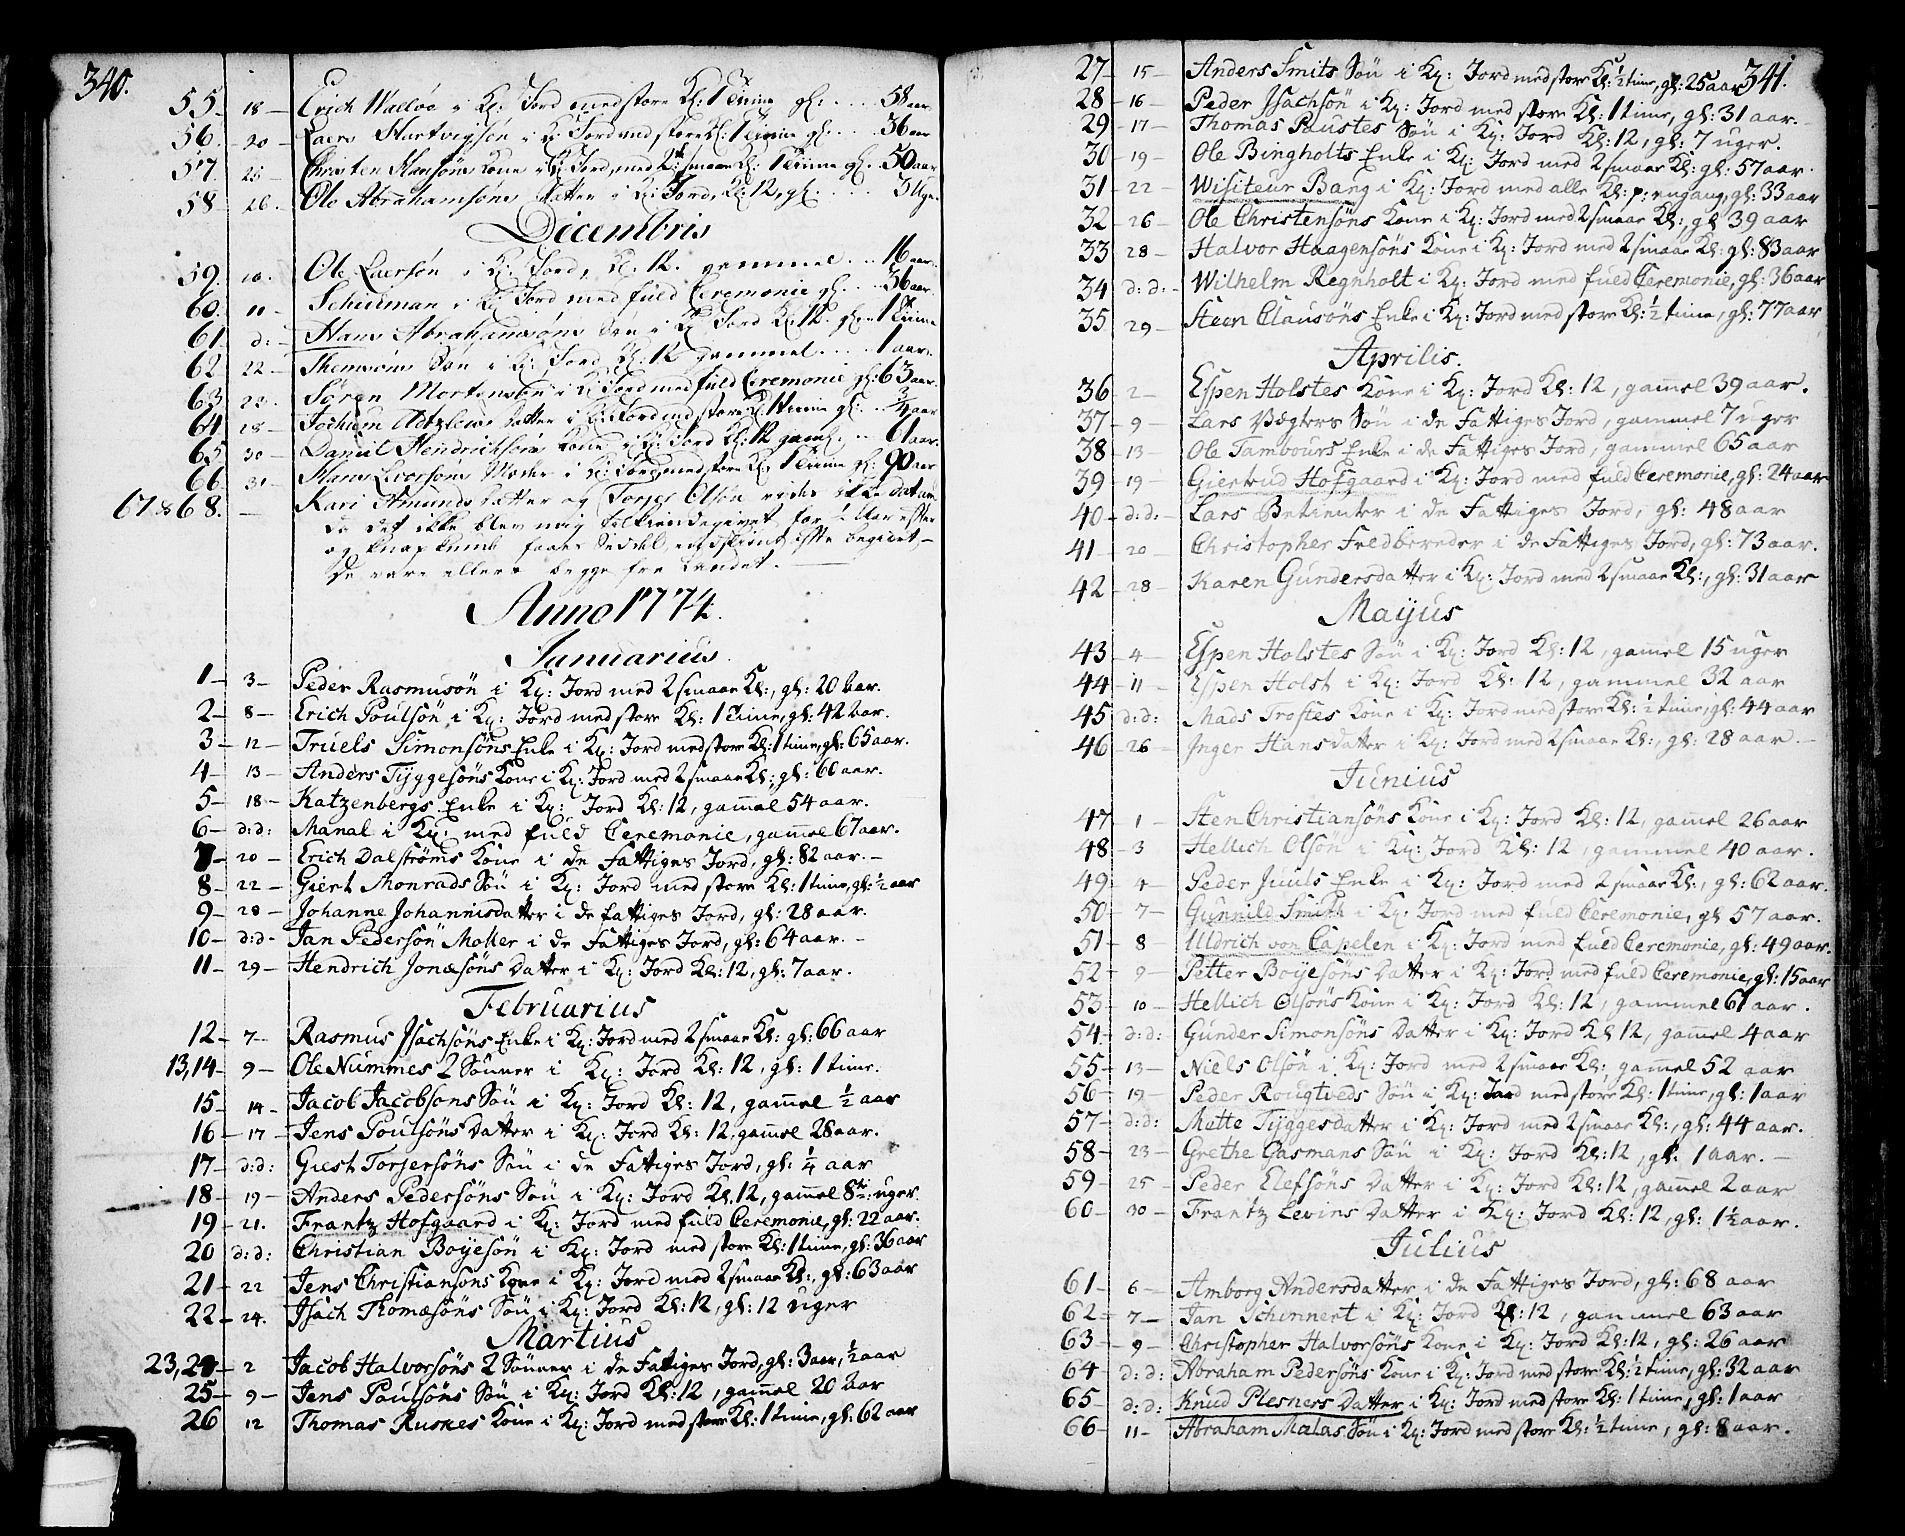 340.
55– 18– Erich Wadvoe i Kẏ: Jord med store Kl: 1 Time gl: .... 58 aar
56. –20– Laers Hartvigsøn i K: Jord med store Kl: 1 Time gl: ... 36 aar
57. 25– Christen Hansøns Kone i K: Jord, med 2 smaae Kl: 1 Time gl. 50 aar
58– 26. Ole Abrahamsøns Datter i K: Jord, Kl: 12, gl. .... 3 Uger
Decembris
59. 10. Ole Laersøn i K: Jord, Kl: 12. gammel ... 16 aar.
60. 11– Schiedman i K: Jord med fuld Ceremonie gl. ... 36 aar.
61. d: – Hans Abrahamsøns Søn i K: Jord Kl: 12. gl. 1 Time
62 22– Themsøns Søn i K: Jord, Kl: 12 gammel .... 1 aar.
63. 22. Søren Mortensen i K: Jord med fuld Ceremonie gl: 63 aar.
64 28– Jochum Adtzlews Datter i K: Jord med store K: 1 Time gl: .. 3/4 aar
65. 30– Daniel Hendrichsøns Kone i K: Jord Kl: 12 gaml. .. 61 aar.
66. 31– Hans Lversøns Moder i K: Jord med store Kl: 1 Time gl: 90 aar
67 & 68. – Kari Amunds datter og Torjes Olsøn vides ikke datum
da det ikke blev mig tilkiendegivet for 1/2 Aar efter
og knap kunde faae Seddel, endskiønt ofte begieret, –
De vare ellers begge fra Landet. –
Anno 1774.
Januarius.
1– 3– Peder Rasmusøn i Kẏ: Jord med 2 smaae Kl:, gl: 20 aar.
2– 8– Erich Poulsøn i Kẏ: Jord med store Kl: 1 Time, gl: 42 aar.
3– 12– Truels Simonsøns Enke i Kẏ: Jord med store Kl: 1 time, gl: 65 aar.
4– 13– Anders Tÿggesøns Kone i Kẏ: Jord med 2 smaae Kl:, gl: 60 aar.
5– 18– Katzenbergs Enke i Kẏ: Jord Kl: 12, gam̅el 54 aar.
6– d:d: Manal i Kẏ: med fuld Ceremonie, gam̅el 67 aar.
7– 20– Erich Dalstrøms Kone i de Fattiges Jord, gl: 82 aar. –
8– 22– Giert Monrads Søn i Kẏ: Jord med store Kl: 1 time, gl: 1/2 aar
9– 28– Johanne Johannisdatter i de fattiges Jord, gl: 28 aar.
10– d:d– Jan Pedersøn Møller i de Fattiges Jord, gl: 64 aar. –
11– 29– Hendrich Jonæsøns Datter i Kẏ: Jord Kl: 12, gl: 7 aar.
Februarius
12– 7– Rasmus Jsachsøns Enke i Kẏ: Jord med 2 smaae Kl: gl: 66 aar
13, 14– 9– Ole Nummes 2 Sønner i Kẏ: Jord Kl: 12, gl: 1 time.
15– 14– Jacob Jacobsøns Søn i Kẏ: Jord Kl: 12, gam̅el 1/2 aar
16– 17– Jens Poulsøns Datter i Kẏ: Jord Kl: 12, gam̅el 28 aar.
17– d:d: Giest Torjersøns Søn i de Fattiges Jord, gl: 1/4 aar
18– 19– Anders Pedersøns Søn i Kẏ: Jord Kl. 12, gam̅el 8te uger.
19– 21. Frantz Hofgaard i Kẏ: Jord med fuld Ceremonie, gl: 22 aar.
20 d:d: Christian Boÿesøn i Kẏ: Jord med store Kl: 1 time, gl: 36 aar
21– 22 Jens Christiansøns Kone i Kẏ: Jord med 2 smaae Kl:, gl: 63 aar
22– 24. Jsach Thomæsøns Søn i Kẏ: Jord Kl: 12, gl: 12 uger
Martius
23, 24– 2 Jacob Halvorsøns 2 Sønner i de Fattiges Jord, gl: 3 aar, 1/2 aar
25– 9– Jens Paulsøns Søn i Kẏ: Jord Kl: 12, gam̅el 20 aar
26 12 Thomas Ruskes Kone i Kẏ: Jord med store Kl: 1 time, gl: 62 aar
341.
27– 15– Anders Smits Søn i Kẏ: Jord med store Kl: 1/2 time, gl: 25 aar
28– 16– Peder Jsachsøn i Kẏ: Jord med store Kl: 1 time, gl: 31 aar. –
29– 17– Thomas Paustes Søn i Kẏ: Jord Kl: 12, gl: 7 uger.
30– 19– Ole Bingholts Enke i Kẏ: Jord med 2 smaae Kl: gl: 57 aar.
31– 22– Wisiteur Bang i Kẏ: Jord med alle Kl: p: engang, gl: 33 aar
32– 26– Ole Christensøns Kone i Kẏ: Jord med 2 smaae Kl:, gl 39 aar
33– 28– Halvor Haagensøns Kone i Kẏ: Jord med 2 smaae Kl: gl: 83 aar
34 d:d:– Wilhelm Regnholt i Kẏ: Jord med fuld Ceremonie, gl: 36 aar
35 29– Steen Clausøns Enke i Kẏ: Jord med store Kl: 1/2 time, gl: 77 aar
Aprilis.
36 2– Espen Holstes Kone i Kẏ: Jord Kl: 12, gam̅el 39 aar.
37– 9– Lars Vægters Søn i de Fattiges Jord, gammel 7 uger
38– 13– Ole Tambours Enke i de Fattiges Jord, gammel 65 aar
39– 19– Giertrud Hofgaard i Kẏ: Jord med fuld Ceremonie, gl: 24 aar
40– d:d:– Lars Betienter i de Fattiges Jord, gl: 48 aar
41– 20– Christopher Feldbereder i de Fattiges Jord, gl: 73 aar.
42– 28– Karen Gundersdatter i Kẏ: Jord med 2 smaae Kl:, gl: 31 aar
Majus
43– 4– Espen Holstes Søn i Kẏ: Jord Kl: 12, gam̅el 15 uger
44– 11– Espen Holst i Kẏ: Jord Kl: 12, gammel 32 aar
45 d:d: Mads Trostes Kone i Kẏ: Jord med store Kl: 1/2 time, gl: 44 aar
46– 26– Jnger Hansdatter i Kẏ: Jord med 2 smaae Kl:, gl: 28 aar –
Junius
47– 1– Sten Christiansøns Kone i Kẏ: Jord Kl: 12, gam̅el 26 aar
48– 3 Hellich Olsøn i Kẏ: Jord Kl: 12, gammel 40 aar.
49– 4– Peder Juuls Enke i Kẏ: Jord med 2 smaae Kl:, gl: 62 aar.
50– 7– Gunnild Smith i Kẏ: Jord med fuld Ceremonie, gl 57 aar.
51– 8– Uldrich von Capelen i Kẏ: Jord med fuld Ceremonie, gl: 49 aar.
52– 9– Petter Boÿesøns Datter i Kẏ: Jord med fuld Ceremonie, gl: 15 aar
53– 10– Hellich Olsøns Kone i Kẏ: Jord Kl: 12, gammel 61 aar.
54– d:d: Gunder Simonsøns Datter i Kẏ: Jord Kl 12, gammel 4 aar
55– 13– Niels Olsøn i Kẏ: Jord med 2 smaae Kl: gam̅el 52 aar
56– 19– Peder Rougtveds Søn i Kẏ: Jord med store Kl: 1 time, gl: 1 aar
57– d:d: Mette Tÿggesdatter i Kẏ: Jord med 2 smaae Kl:, gl: 44 aar.
58– 23– Grethe Gasmans Søn i Kẏ: Jord Kl: 12, gl: 1 aar. –
59– 25– Peder Elefsøns Datter i Kẏ: Jord Kl: 12, gam̅el 2 aar
60– 30– Frantz Levins Datter i Kẏ: Jord Kl: 12, gl: 1 1/2 aar.
Julius
61– 6– Amborg Andersdatter i de Fattiges Jord, gl: 68 aar
62– 7– Jan Schinnert i Kẏ: Jord Kl: 12, gammel 63 aar
63– 9– Christopher Halvorsøns Kone i Kẏ: Jord Kl: 12, gl: 26 aar
64– d:d: Abraham Pedersøns Kone i Kẏ: Jord med store Kl: 1/2 time, gl: 32 aar
65– d:d: Knud Plesners Datter i Kẏ: Jord med store Kl: 1 time, gl: 1 aar
66– 11– Abraham Malas Søn i Kẏ: Jord med store Kl: 1/2 time, gl: 8 aar.